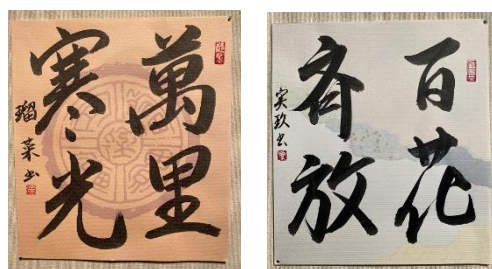 萬里
寒光
瑠菜书
百花
斉放
実玖书